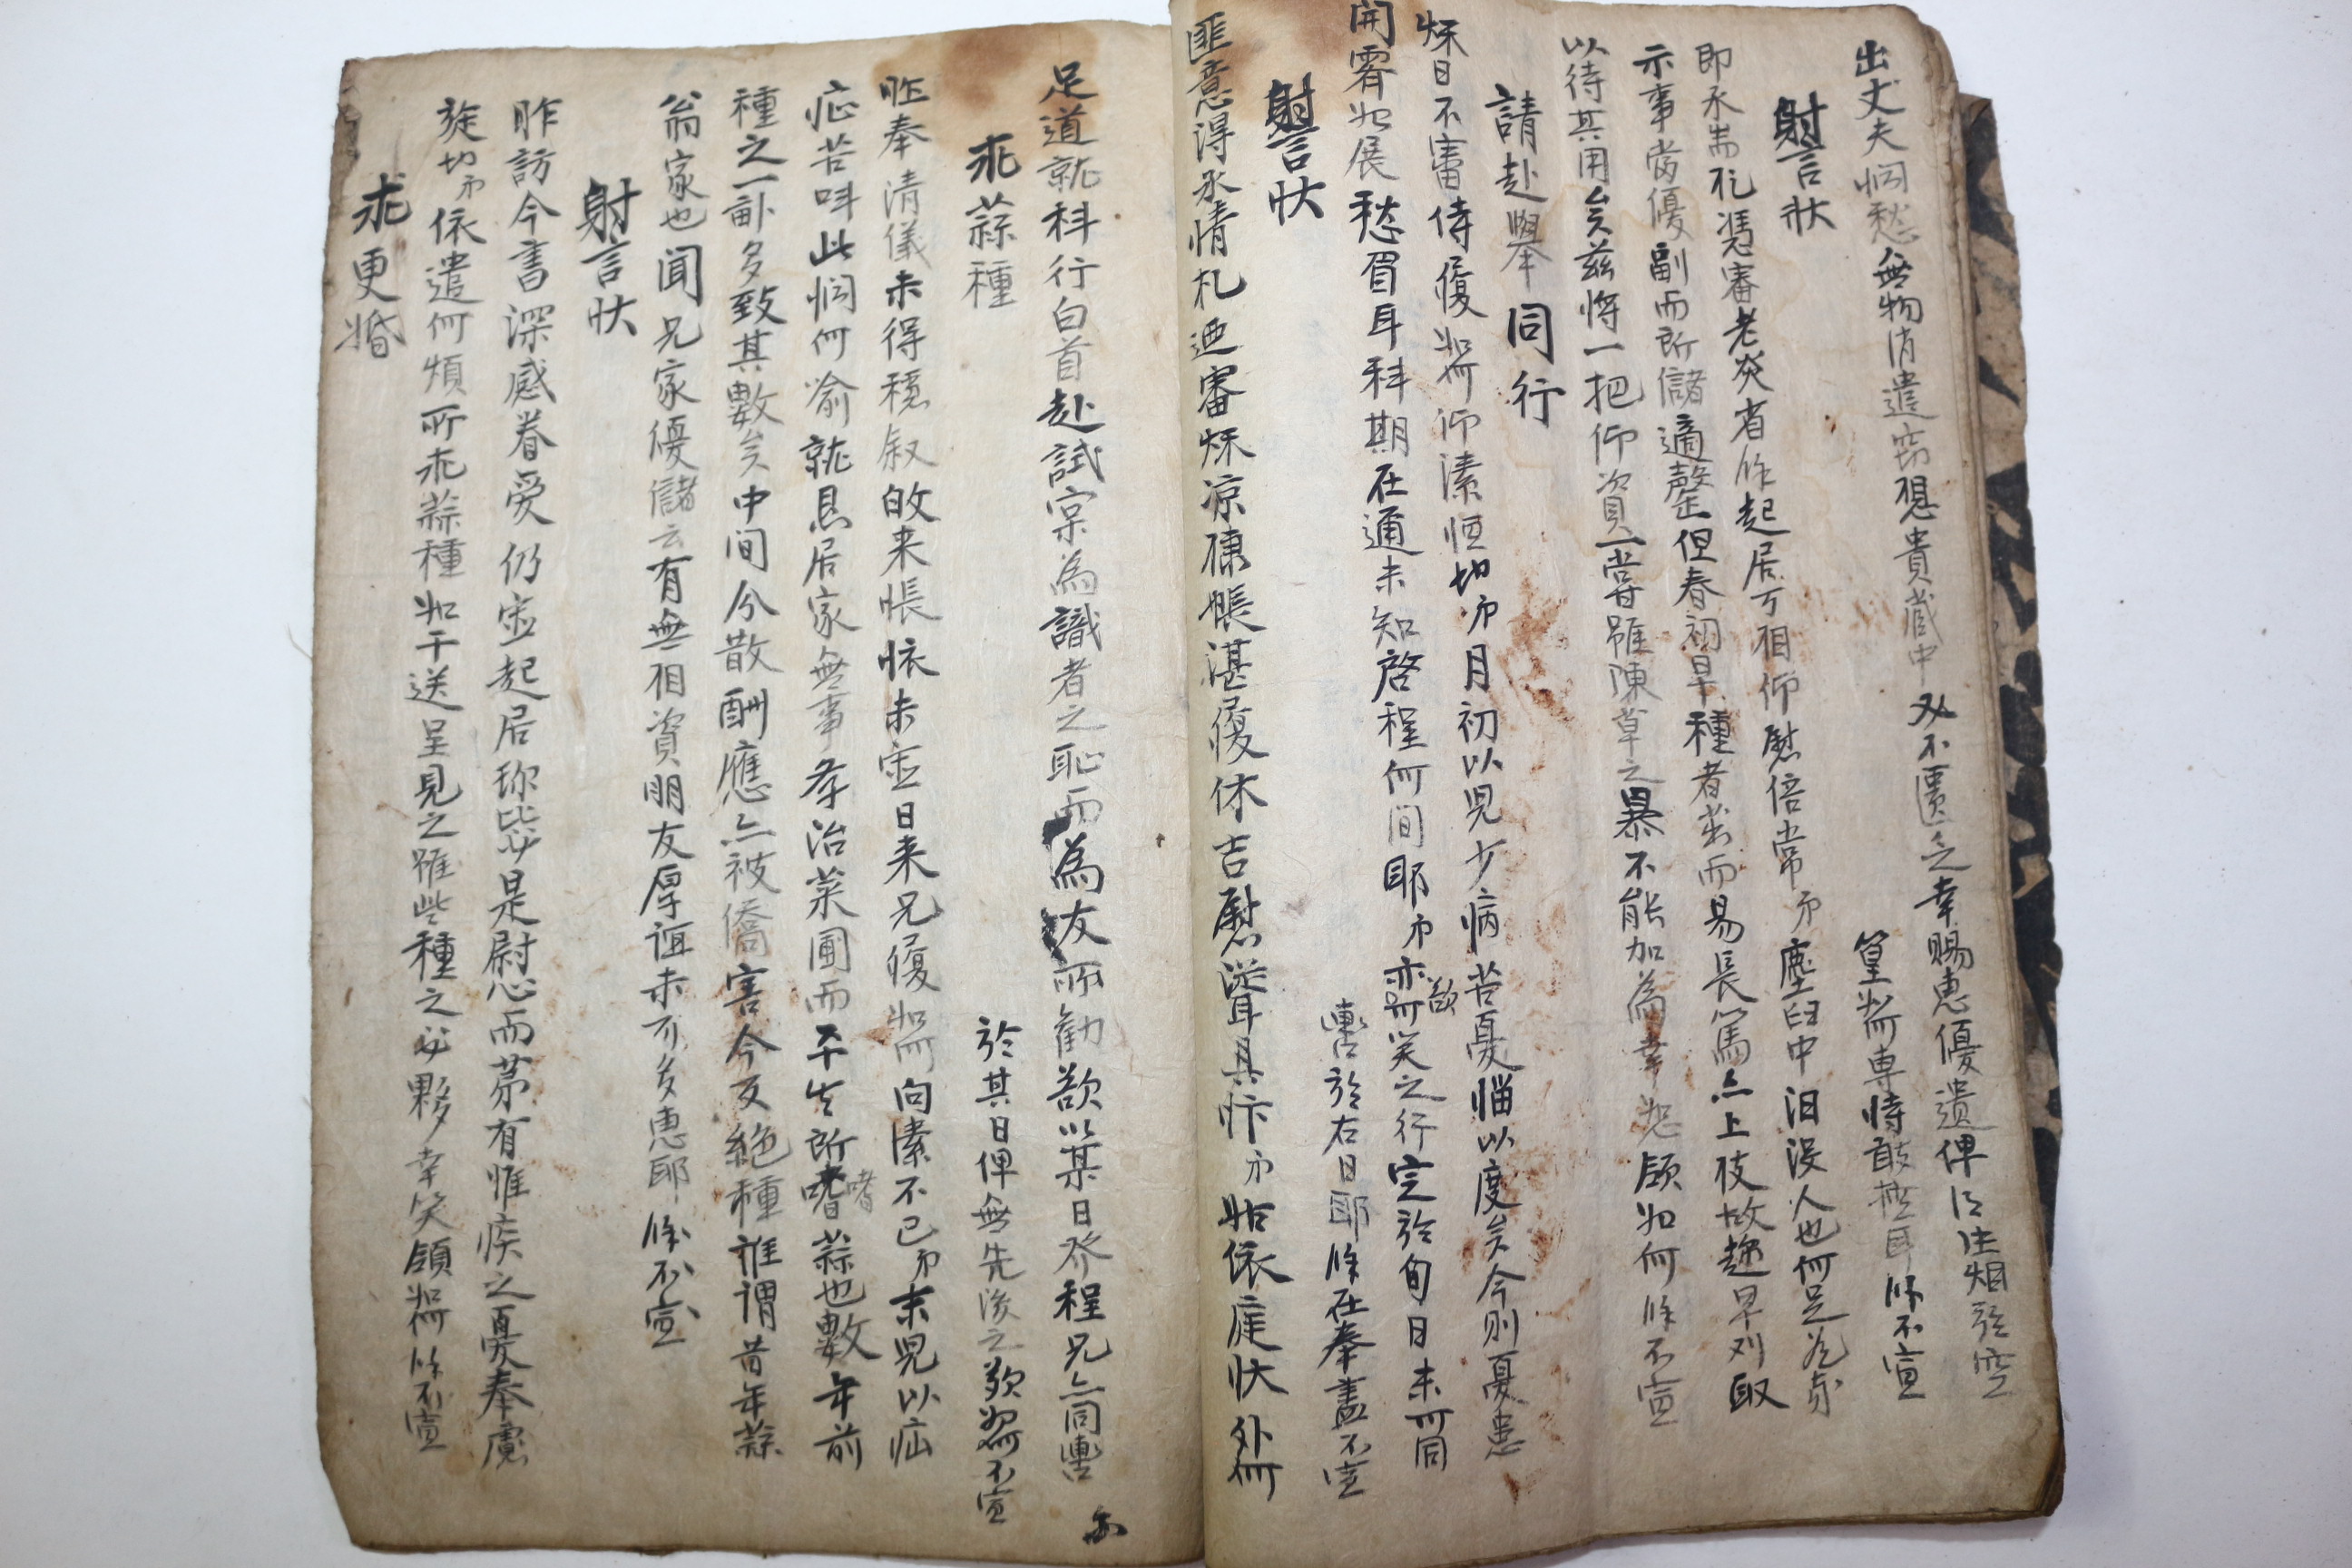 出丈夫悶愁無物消遣窃想貴藏中必不匱乏幸賜惠優遺俾得注烟
篁
專恃敢
耳餘不宣
謝狀
即承耑札憑審老炎省作起居万相仰慰倍常弟塵臼中汨沒人也何足
示事當優副而所儲適罄但春初旱種者
而易長
亦上枝故趁早刈取
以待其用矣玆將一把仰資一嘗雖陳草之暴不能加為幸
領如何餘不宣
請赴擧同行
秋日不審侍履如何仰溸恒切弟月初以兒少病苦憂惱以度矣今則憂患
開霽如展愁眉耳科期在邇未知啓程何間耶弟亦欲
之行定於旬日未可同
轡於右日耶餘在奉盡不宣
謝狀
匪意得承情札迺審秋凉
湛履休吉慰聳具忭弟怙依庭狀外何
足道就科行白首赴試
為識者之恥而為友所勸欲以某日發程兄亦同轡
於其日俾無先後之歎如何不宣
求蒜種
昨奉清儀未得穩叙
来悵
未
日来兄履如何向溸不已弟
兒以疝
症苦叫此悶何喩就息居家無事
治菜圃而平生所嗜蒜也數年前
種之一畝多致其數矣中間分散酬應亦被
害今反絶種誰謂昔年蒜
翁家也聞兄家優儲云有無相資朋友厚誼未可多惠耶餘不宣
謝狀
昨訪今書深感眷愛仍
起居
毖是慰心而第有惟疾之憂奉慮
旋切弟依遣何煩所求蒜種如干送呈見之雖些種之必夥幸笑領如何餘不宣
求更婚